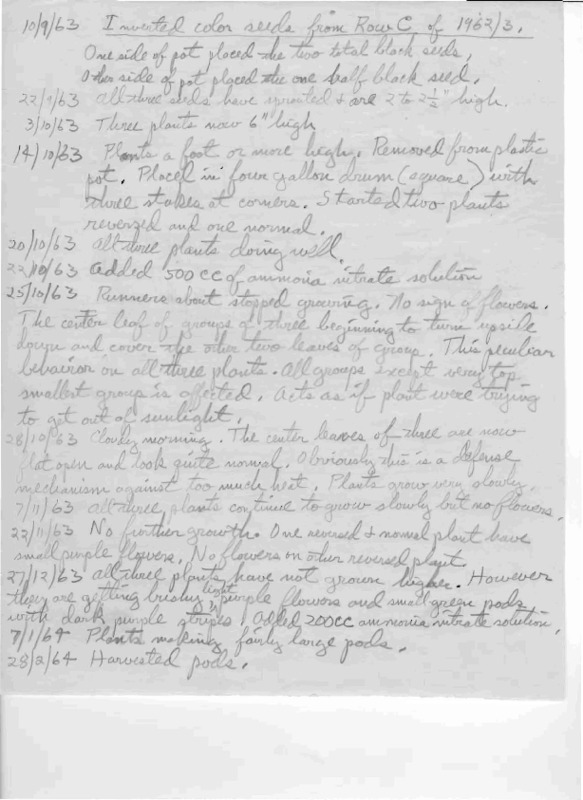 10/9/63 Inverted color seeds from Row C of 1962/3.
One side of pot placed the two total black seeds,
Other side of pot placed the one half black seed.
22/9/63 All three seeds have sprouted & are 2 to 2½" high.
3/10/63 Three plants now 6" high
14/10/63 Plants a foot or more high. Removed from plastic
pot. Placed in four gallon drum (square) with
three stakes at corners. Started two plants
reversed and one normal.
20/10/63 All three plants doing well.
22/10/63 Added 500 cc of ammonia nitrate solution
25/10/63 Runners about stopped growing. No sign of flowers.
The center leaf of groups of three beginning to turn upside
down and cover the other two leaves of group. This peculiar
behavior on all three plants. All groups except very top
smallest group is affected. Acts as if plant were trying
to get out of sunlight.
28/10/63 Cloudy morning. The center leaves of three are now
flat open and look quite normal. Obviously this is a defense
mechanism against too much heat. Plants grow very slowly.
7/11/63 All three plants continue to grow slowly but no flowers.
22/11/63 No further growth. One reversed & normal plant have
small purple flowers. No flowers on other reversed plant
27/12/63 All three plants have not grown higher. However
they are getting bushy light purple flowers and small green pods
with dark purple stripes. Added 200cc ammonia nitrate solution.
7/1/64 Plants making fairly large pods.
28/2/64 Harvested pods.